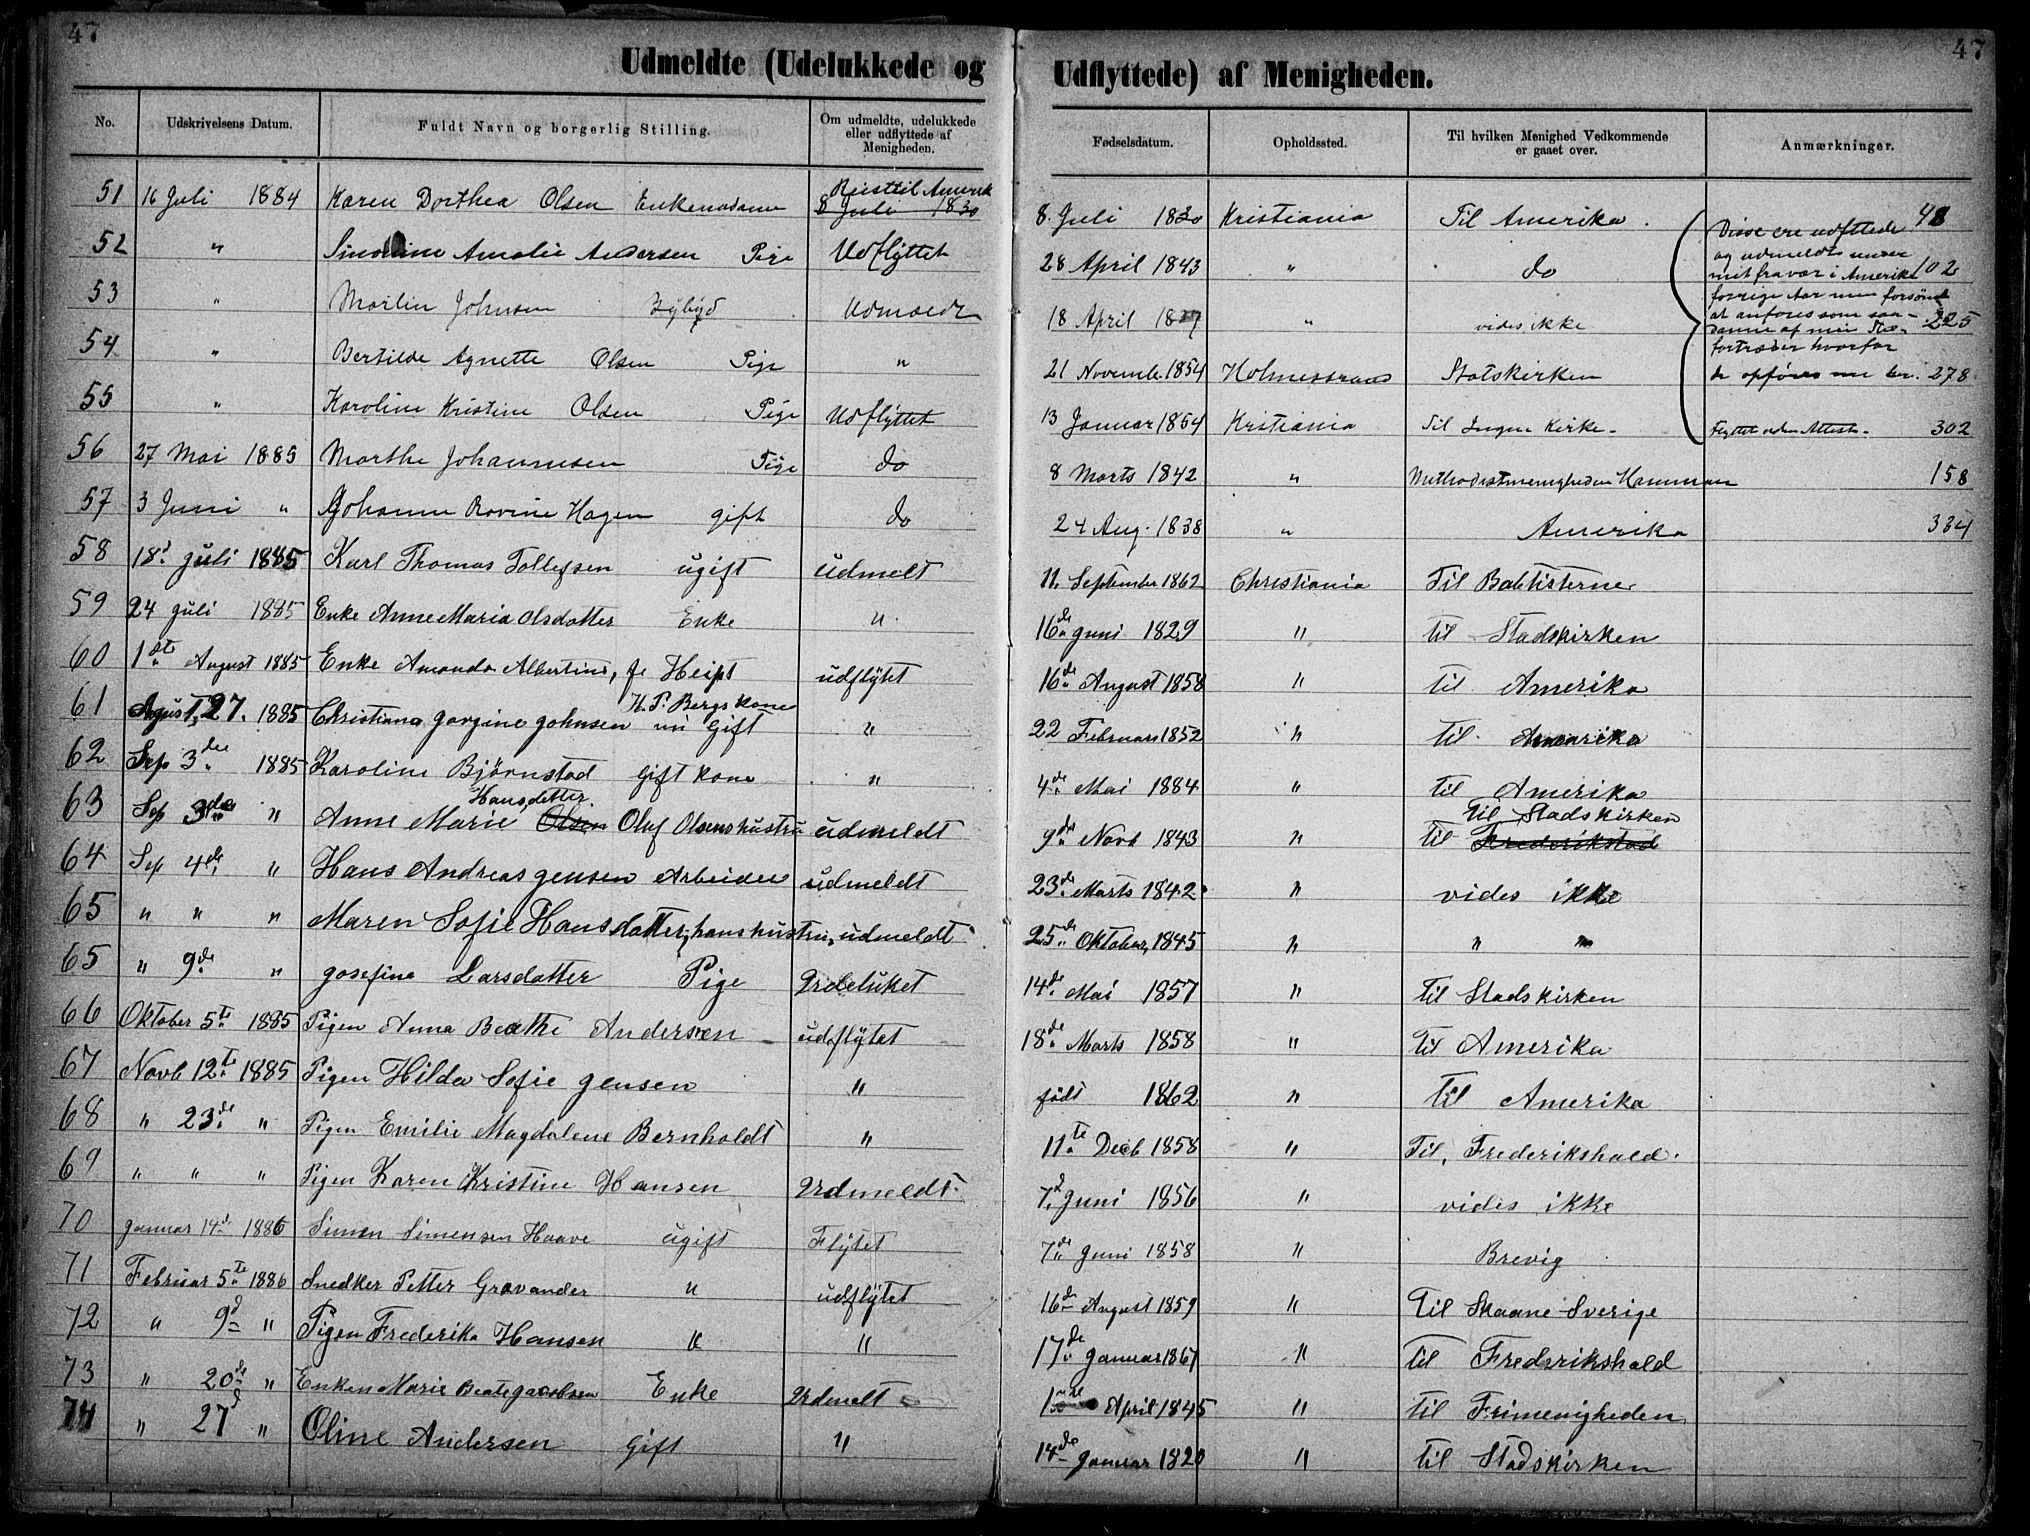 47
47
Udmeldte (Udelukkede og Udflyttede) af Menigheden.
No. Udskrivelsens Datum. Fuldt Navn og borgerlig Stilling. Om udmeldte, udelukkede eller udflyttede af Menigheden. Fødselsdatum. Opholdssted. Til hvilken Menighed Vedkommende er gaaet over. Anmærkninger.
51 16 Juli 1884 Karen Dorthea Olsen Enkemadame Reist til Amerik 8 Juli 1830 8. Juli 1830 Kristiania Til Amerika. 48
52 " Amalie Andersen Pige Udflyttet 28 April 1843 " do 102
53 " Johnsen Udmeldt 18 April " vides ikke 225
54 " Bertilde Agnette Olsen Pige " 21 Novemb. 1854 Holmestrand Statskirken 278
Disse ere udflttede
og udmeldte under
mit fravær i Amerika
forrige Aar men forsømt
at anføres som saa-
danne af min Sted-
fortræder hvorfor
de opføres nu her.
55 " Karoline Kristine Olsen Pige Udflyttet 13 Januar 1854 Kristiania Til Ingen Kirke- Flyttet uden Attest. 302
56 27 Mai 1885 Marthe Johannesen Pige do 8 Marts 1842 " Methodistmenigheden Hammar 158
57 3 Juni " Johanne Rovine Hagen gift do 24 Aug. 1838 " Amerika 334
58 18d Juli 1885 Karl Thomas Tollefsen ugift udmelt 11. September 1862 Christiania Til Babtisterne
59 24 Juli 1885 Enke Anne Maria Olsdatter Enke " 16de Juni 1829 " til Stadskirken
60 1ste August 1885 Enke Amanda Albertine, f. Heist udflytet 16de August 1858 " til Amerika
61 Agust, 27. 1885 Christiana Jørgine Johnsen nu Gift H. P. Bergs kone " 22 Februar 1852 " til Amarika
62 Sep 3de 1885 Karoline Bjørnstad Gift kone " 4de Mai 1884 " til Amerika
63 Sep 3de " Anne Marie Olsen Hansdatter. Oluf Olsens hustru udmeldt 9de Novb 1843 " til Frederikstad Til Stadskirken
64 Sep 4de " Hans Andreas Jensen Arbeider udmeldt 23de Marts 1842 " vides ikke
65 " " " Maren Sofie Hansdatter, hans hustru, udmeldt 25de Oktober, 1845 " " "
65 " 9de " Josefine Larsdatter Pige Udeluket 14de Mai 1857 " til Stadskirken
66 Oktober 5te 1885 Pigen Anna Beathe Andersen udflytet 18de Marts 1858 " til Amerika
67 Novb 12te 1885 Pigen Hilda Sofie Jensen " født 1862 " til Amerika
68 " 23de " Pigen Emilie Magdalene Bernholdt " 11te Decb 1858 " Til, Frederikshald.
69 " " " Pigen Karen Kristine Hansen Udmeldt. 7d Juni 1856 " vides ikke
70 Januar 14d. 1886 Simon Simensen Haave ugift Flytet 7de Juni 1858 " Brevig
71 Februar 5te 1886 Snedker Petter Gravander " udflytet 16de August 1859 " til Skaane Sverige
72 " 9d " Pigen Frederika Hansen " " 17de Januar 1867 " til Frederikshald
73 " 20de " Enken Marie Beate Jacobsen Enke Udmelt April 1845 " til Frimenigheden
74 " 27d " Oline Andersen Gift " 14de Januar 1820 " til Stadskirken